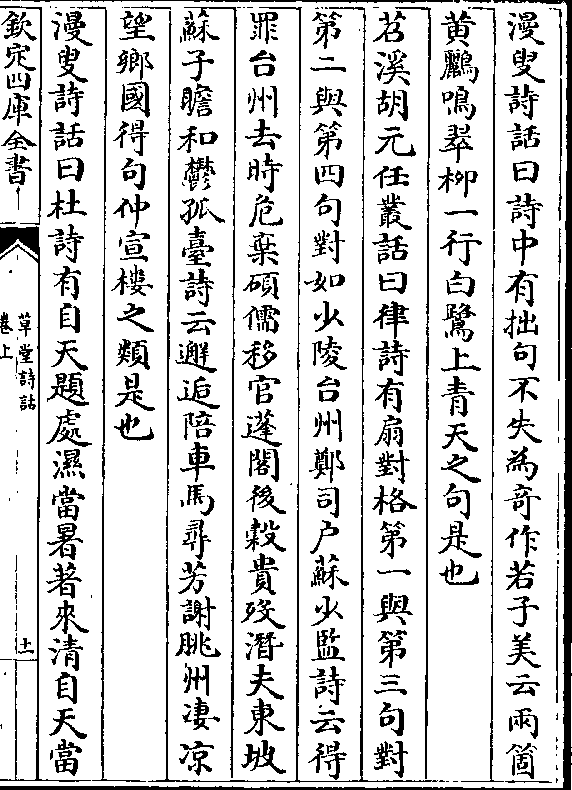 漫叟詩話曰詩中有拙句不失為奇作若子美云兩箇
黄鸝鳴翠柳一行白鷺上青天之句是也
苕溪胡元任叢話曰律詩有扇對格第一與第三句對
第二與第四句對如少陵台州鄭司户蘇少監詩云得
罪台州去時危棄碩儒移官蓬閣後榖貴殁潛夫東坡
蘇子瞻和鬱孤臺詩云邂逅陪車馬尋芳謝朓州凄凉
望鄉國得句仲宣樓之類是也
漫叟詩話曰杜詩有自天題處濕當暑著來清自天當
欽定四庫全書
草堂詩話
卷上
十一